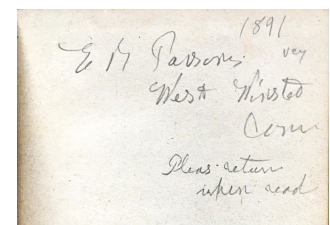 1891
E M Parsons
West Winsted
Conn
Pleas return
when read